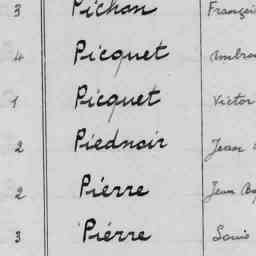 3 Pichon
4 Picquet
1 Picquet Victor
2 Piednoir Jean
2 Pierre Jean
3 Pierre Louis